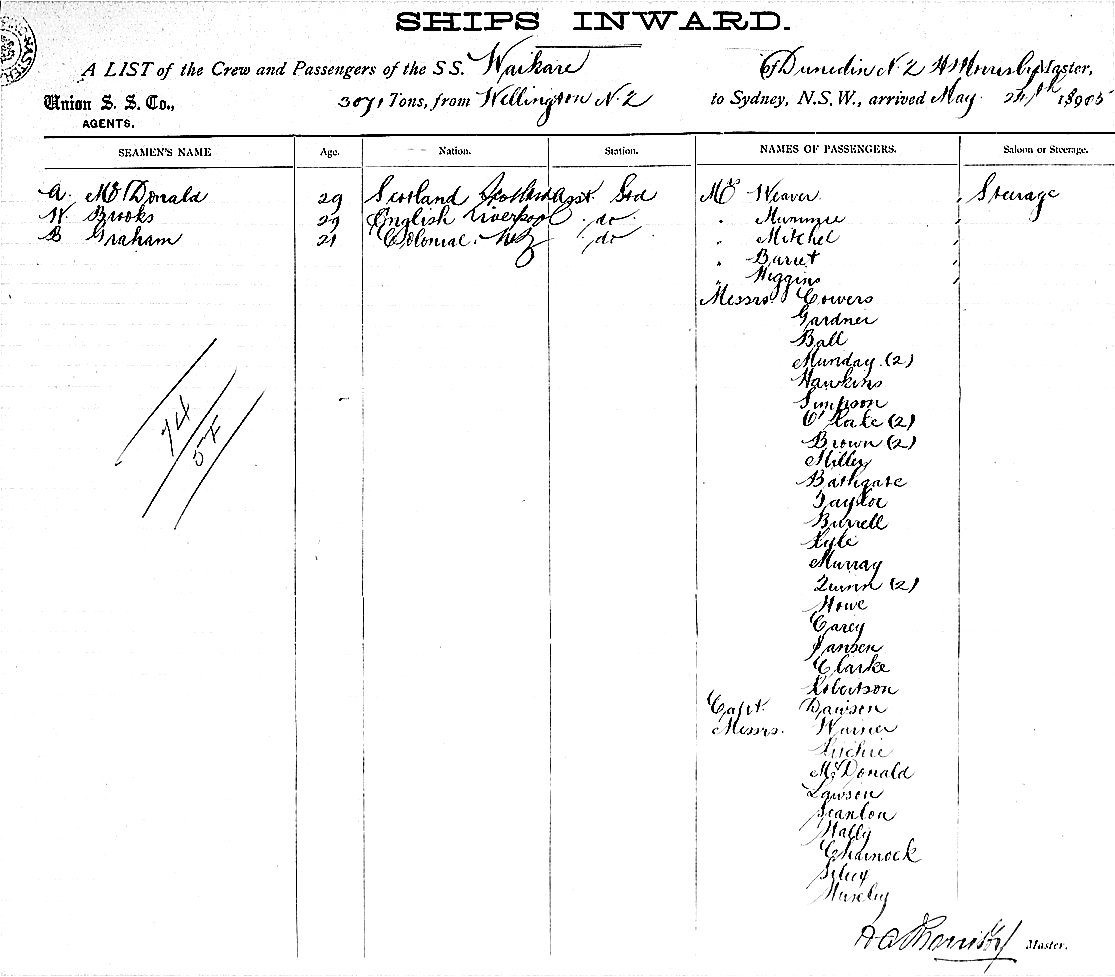 SHIPS INWARD.
A LIST of the Crew and Passengers of the S S. Waikare Of Dunedin N Z Morrisby Master,
Union S. S. Co., 3071 Tons, from Wellington N. Z to Sydney, N.S.W., arrived May 24th 1905
AGENTS.
SEAMEN'S NAME Age. Nation. Station. NAMES OF PASSENGERS. Saloon or Steerage.
A. McDonald 29 Scotland Asst Std Mrs Weaver Steerage
W Brooks 29 English Liverpool do
B Graham 21 Colonial. NZ do " Mitchel
" Barret
" Higgins
Messrs. Cowers
Gardner
Ball
Munday (2)
Hawkins
Simpson
(2)
Brown (2)
Miller
Bathgate
Taylor
Burrell
Kyle
Murray
Quinn (2)
Howe
Carey
Jansen
Clarke
Robertson
Capt. Dawson
Messrs. Warner
Ritchie
McDonald
Lawson
Scanlon
Hally
Charnock
74
54
Master.